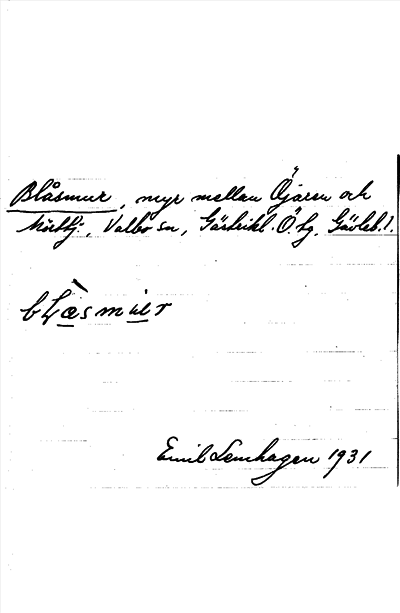 Blåsmur, myr mellan Öjaren och
Mörttj:, Valbo sn, Gästrikl. Ö. hg, Gävleb. l.
blæ̀smuer
Emil Lenhagen 1931